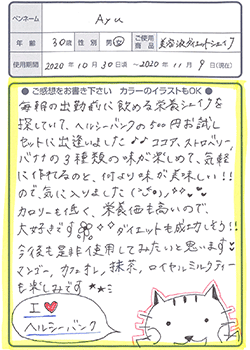 ペンネーム Ayu
年齢 30歳 性別 男・女 ご使用商品 美容液ダイエットシェイク
使用期間 2020年10月30日～2020年11月9日(現在)
● ご感想をお書き下さい カラーのイラストもOK ●
毎朝の出勤前に飲める栄養シェイクを
探していて、ヘルシーバンクの500円お試し
セットに出逢いました♪♪ ココア、ストロベリー、
バナナの3種類の味が楽しめて、気軽
に作れるのと、何より味が美味しい!!
ので、気に入りました
カロリーも低く、栄養価も高いので、
大好きです ダイエットも成功しそう!!
今後も是非使用してみたいと思います
マンゴー、カフェオレ、抹茶、ロイヤルミルクティー
も楽しみです
I ♥
ヘルシーバンク